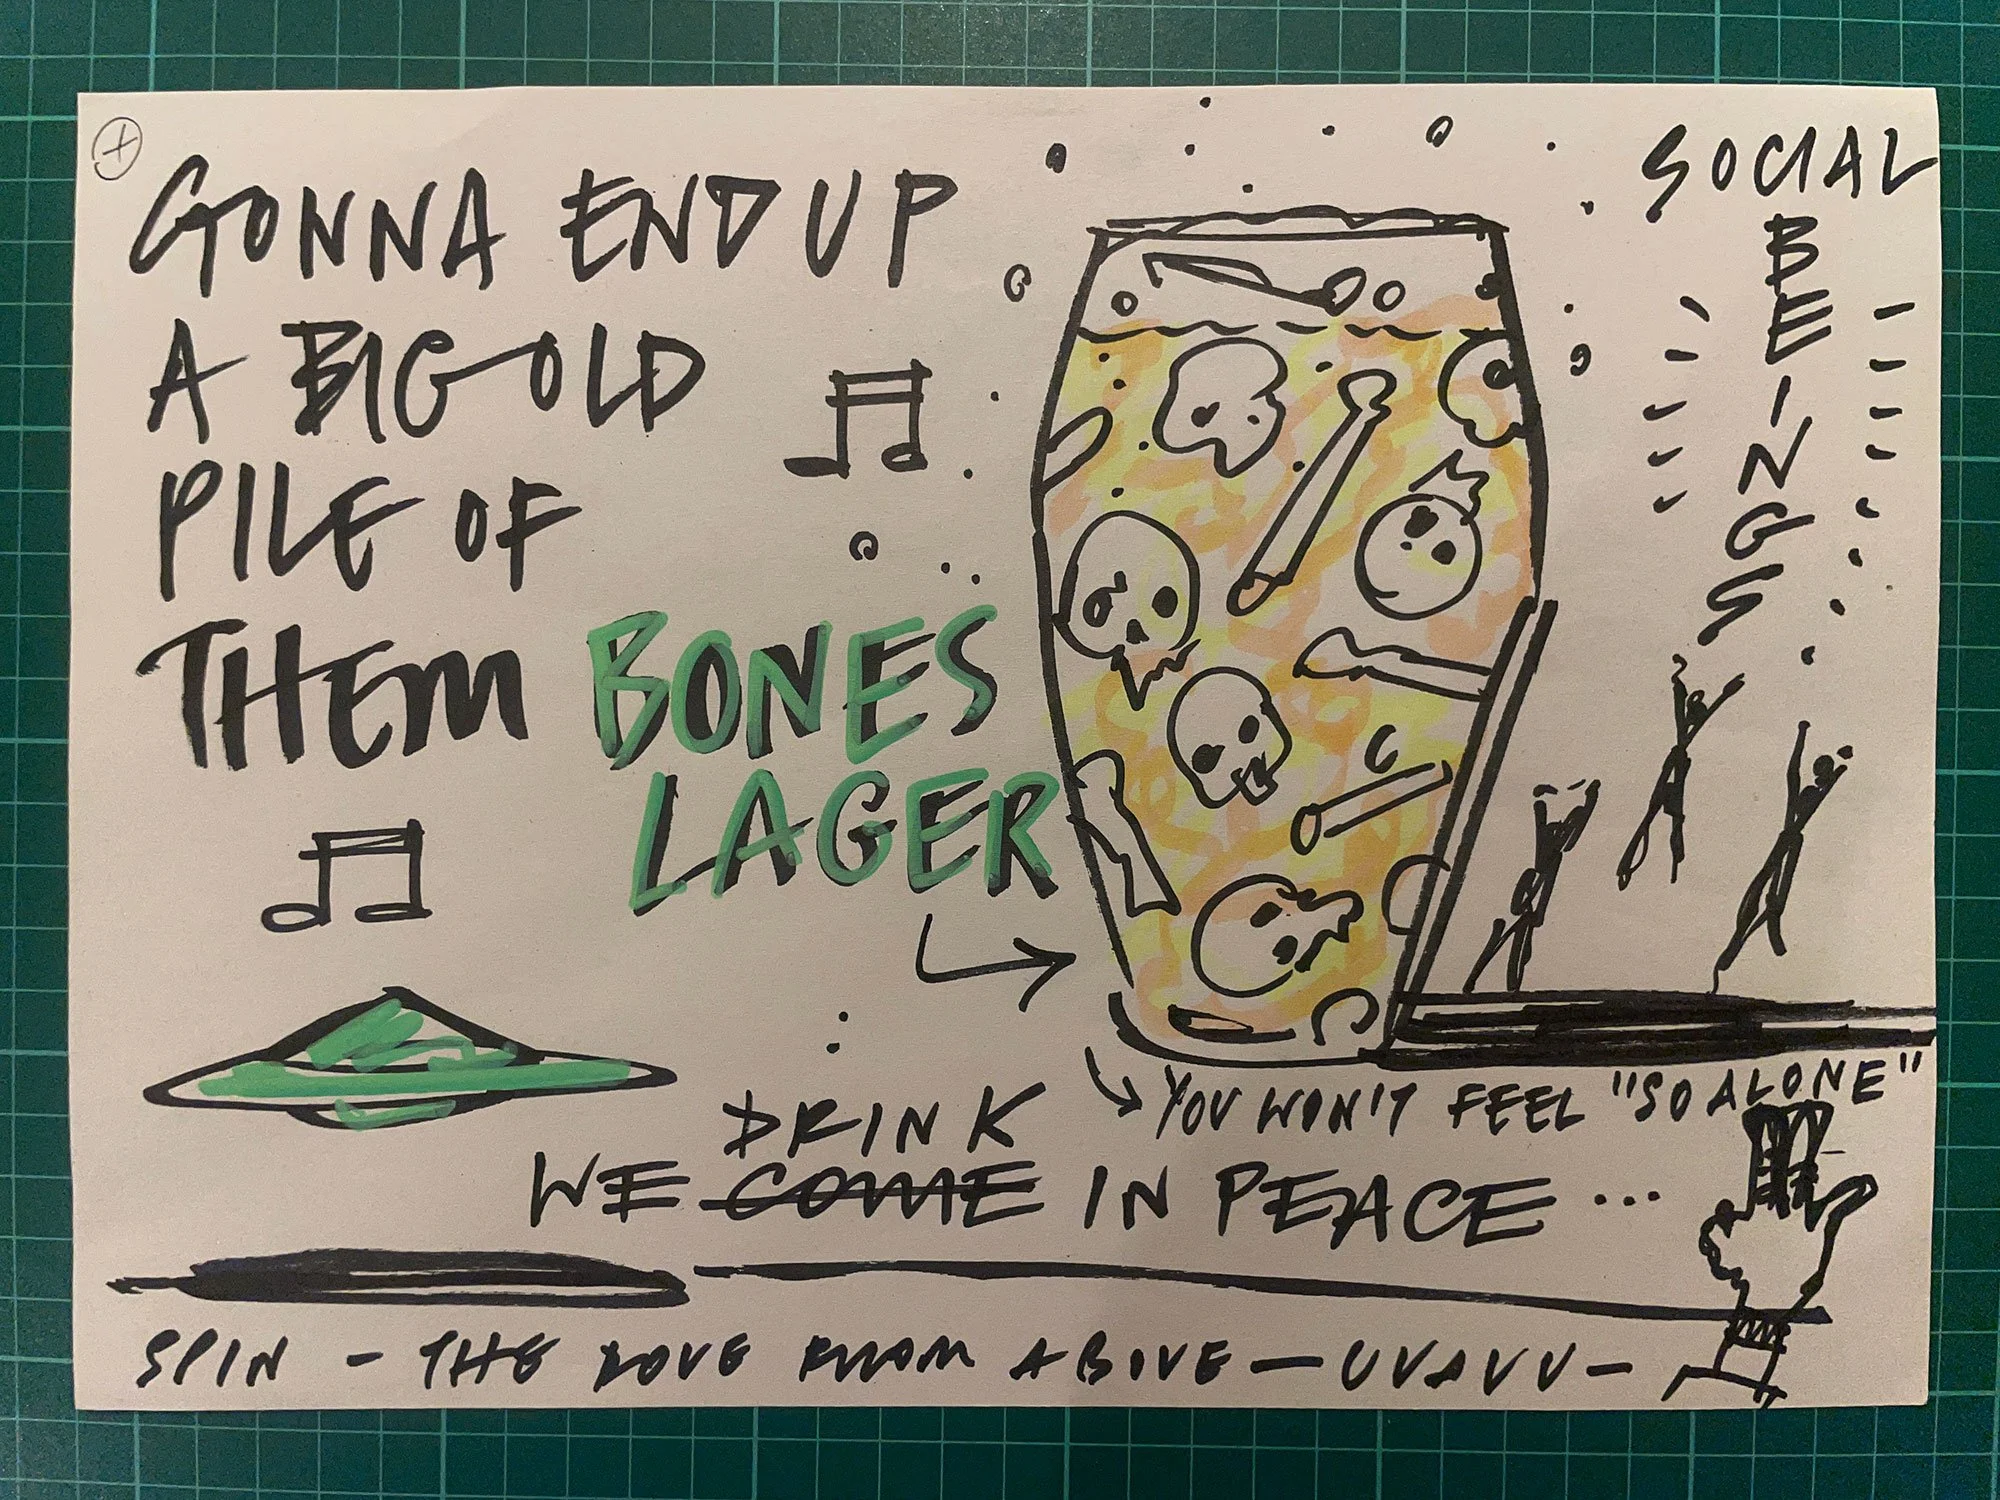 GONNA END UP
A BIG OLD
PILE OF
THEM BONES
LAGER
SOCIAL
BEINGS
YOU WON'T FEEL "SO ALONE"
DRINK
WE COME IN PEACE ...
SPIN - THE DOVE FROM ABOVE - UVAVU -